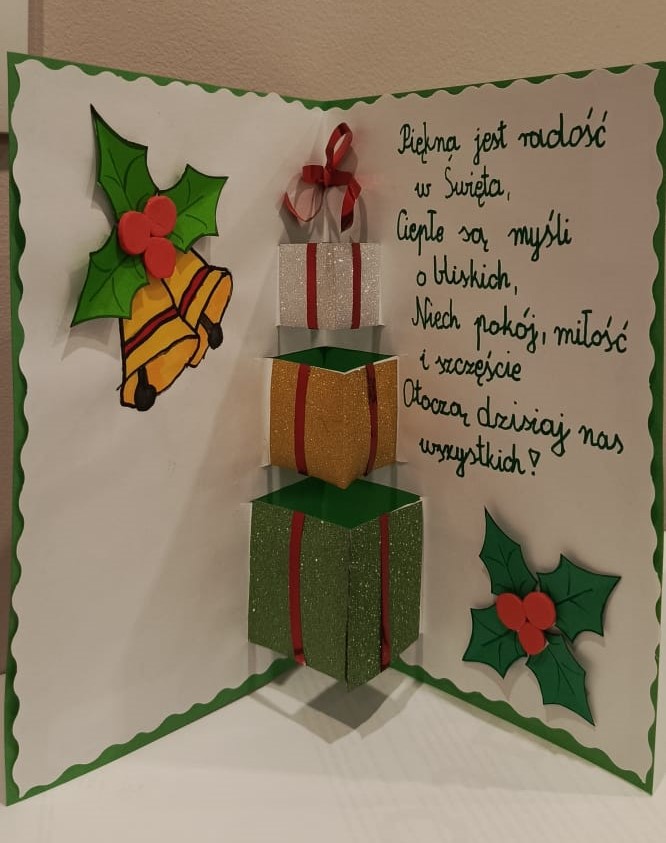 Piękna jest radość
w Święta,
Ciepłe są myśli
o bliskich,
Niech pokój, miłość
i szczęście
Otoczą dzisiaj nas
wszystkich!